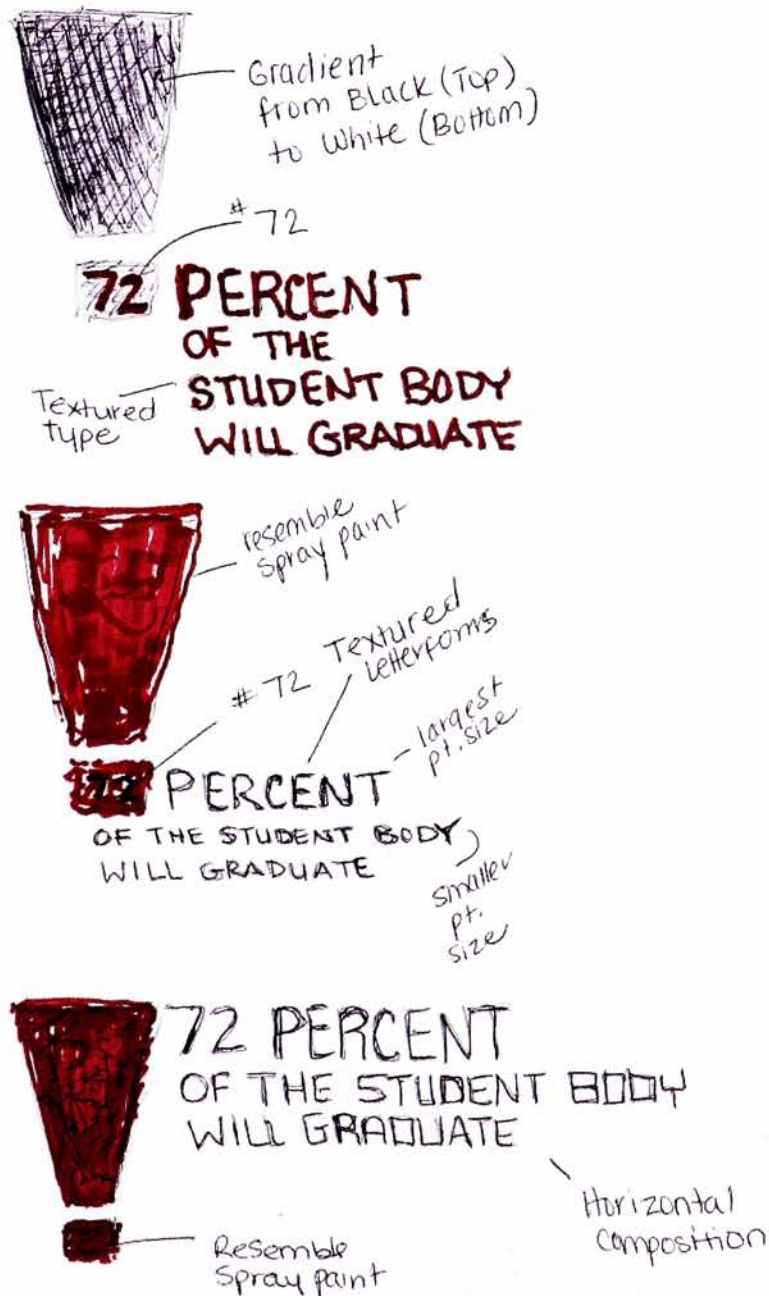 Gradient
from Black (Top)
to White (Bottom)
# 72
72 PERCENT
OF THE
STUDENT BODY
WILL GRADUATE
Textured
type
resemble
spray paint
Textured
letterforms
# 72
largest
pt. size
72 PERCENT
OF THE STUDENT BODY
WILL GRADUATE
smaller
pt.
size
72 PERCENT
OF THE STUDENT BODY
WILL GRADUATE
Horizontal
composition
Resemble
Spray paint